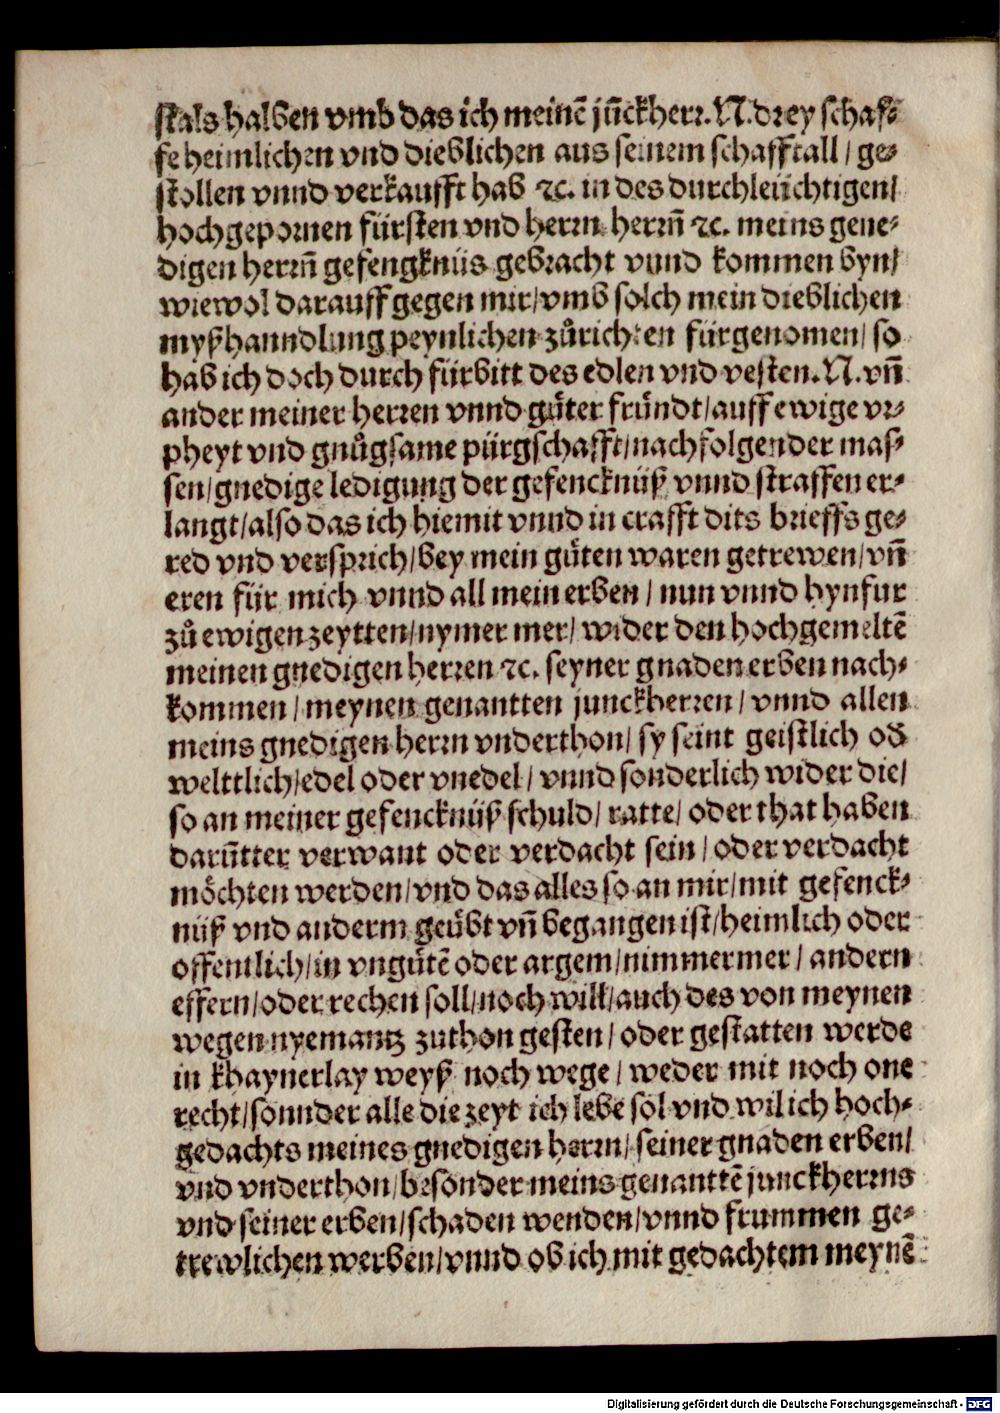 stals halben vmb das ich meinē jūckherr. N. drey schaf⸗
fe heimlichen vnd dieblichen aus seinem schafftall / ge⸗
stollen vnnd verkaufft hab ꝛc. in des durchleüchtigen/
hochgepornen fürsten vnd herrn herrn̄ ꝛc. meins gene⸗
digen herrn̄ gefengknüs gebracht vnnd kommen byn/
wiewol darauff gegen mir/vmb solch mein dieblichen
myßhanndlung peynlichen zůrichten fürgenomen/ so
hab ich doch durch fürbitt des edlen vnd vesten. N. vn̄
ander meiner herren vnnd gůter fründt/auff ewige vr⸗
pheyt vnd gnůgsame pürgschafft/nachfolgender mas⸗
sen/gnedige ledigung der gefencknüß vnnd straffen er⸗
langt/also das ich hiemit vnnd in crafft dits brieffs ge⸗
red vnd versprich/bey mein gůten waren getrewen/vn̄
eren für mich vnnd all mein erben / nun vnnd hynfur
zů ewigen zeytten/nymer mer/ wider den hochgemeltē
meinen gnedigen herren ꝛc. seyner gnaden erben nach⸗
kommen / meynen genantten junckherren / vnnd allen
meins gnedigen herrn vnderthon/ sy seint geistlich od̄
welttlich/edel oder vnedel / vnnd sonderlich wider die/
so an meiner gefencknüß schuld/ ratte/ oder that haben
darūtter verwant oder verdacht sein / oder verdacht
möchten werden/vnd das alles so an mir/mit gefenck⸗
nüß vnd anderm geůbt vn̄ begangen ist/heimlich oder
offentlich/in vngůtē oder argem/nimmermer / andern
effern/oder rechen soll/noch will/auch des von meynen
wegen nyemantz zuthon gesten / oder gestatten werde
in khaynerlay weyß noch wege / weder mit noch one
recht/sonnder alle die zeyt ich lebe sol vnd wil ich hoch⸗
gedachts meines gnedigen herrn/ seiner gnaden erben/
vnd vnderthon/besonder meins genanttē junckherrns
vnd seiner erben/schaden wenden/vnnd frummen ge⸗
trewlichen werben/vnnd ob ich mit gedachtem meynē
Digitalisierung gefördert durch die Deutsche Forschungsgemeinschaft - DFG